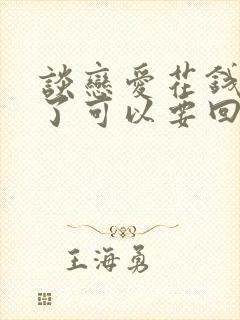 談戀愛花錢
了可以要回
王海勇